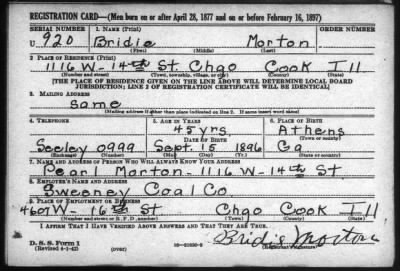 REGISTRATION CARD—(Men born on or after April 28, 1877 and on or before February 16, 1897)
SERIAL NUMBER 1. NAME (Print) ORDER NUMBER
U 920 Bridie Morton
(First) (Middle) (Last)
2. PLACE OF RESIDENCE (Print)
1116 W- 14th St. Chgo Cook Ill
(Number and street) (Town, township, village, or city) (County) (State)
[THE PLACE OF RESIDENCE GIVEN ON THE LINE ABOVE WILL DETERMINE LOCAL BOARD
JURISDICTION; LINE 2 OF REGISTRATION CERTIFICATE WILL BE IDENTICAL]
3. MAILING ADDRESS
same
[Mailing address if other than place indicated on line 2. If same insert word same]
4. TELEPHONE 5. AGE IN YEARS 6. PLACE OF BIRTH
45 yrs Athens
DATE OF BIRTH (Town or county)
Seeley 0999 Sept. 15 1896 Ga
(Exchange) (Number) (Mo.) (Day) (Yr.) (State or country)
7. NAME AND ADDRESS OF PERSON WHO WILL ALWAYS KNOW YOUR ADDRESS
Pearl Morton-1116 W-14th St
8. EMPLOYER'S NAME AND ADDRESS
Sweeney Coal Co
9. PLACE OF EMPLOYMENT OR BUSINESS
4607 W- 16th St Chgo Cook Ill
(Number and street or R. F. D. number) (Town) (County) (State)
I AFFIRM THAT I HAVE VERIFIED ABOVE ANSWERS AND THAT THEY ARE TRUE.
D. S. S. Form 1
(Revised 4-1-42) (over) Bridie Morton
(Registrant's signature)